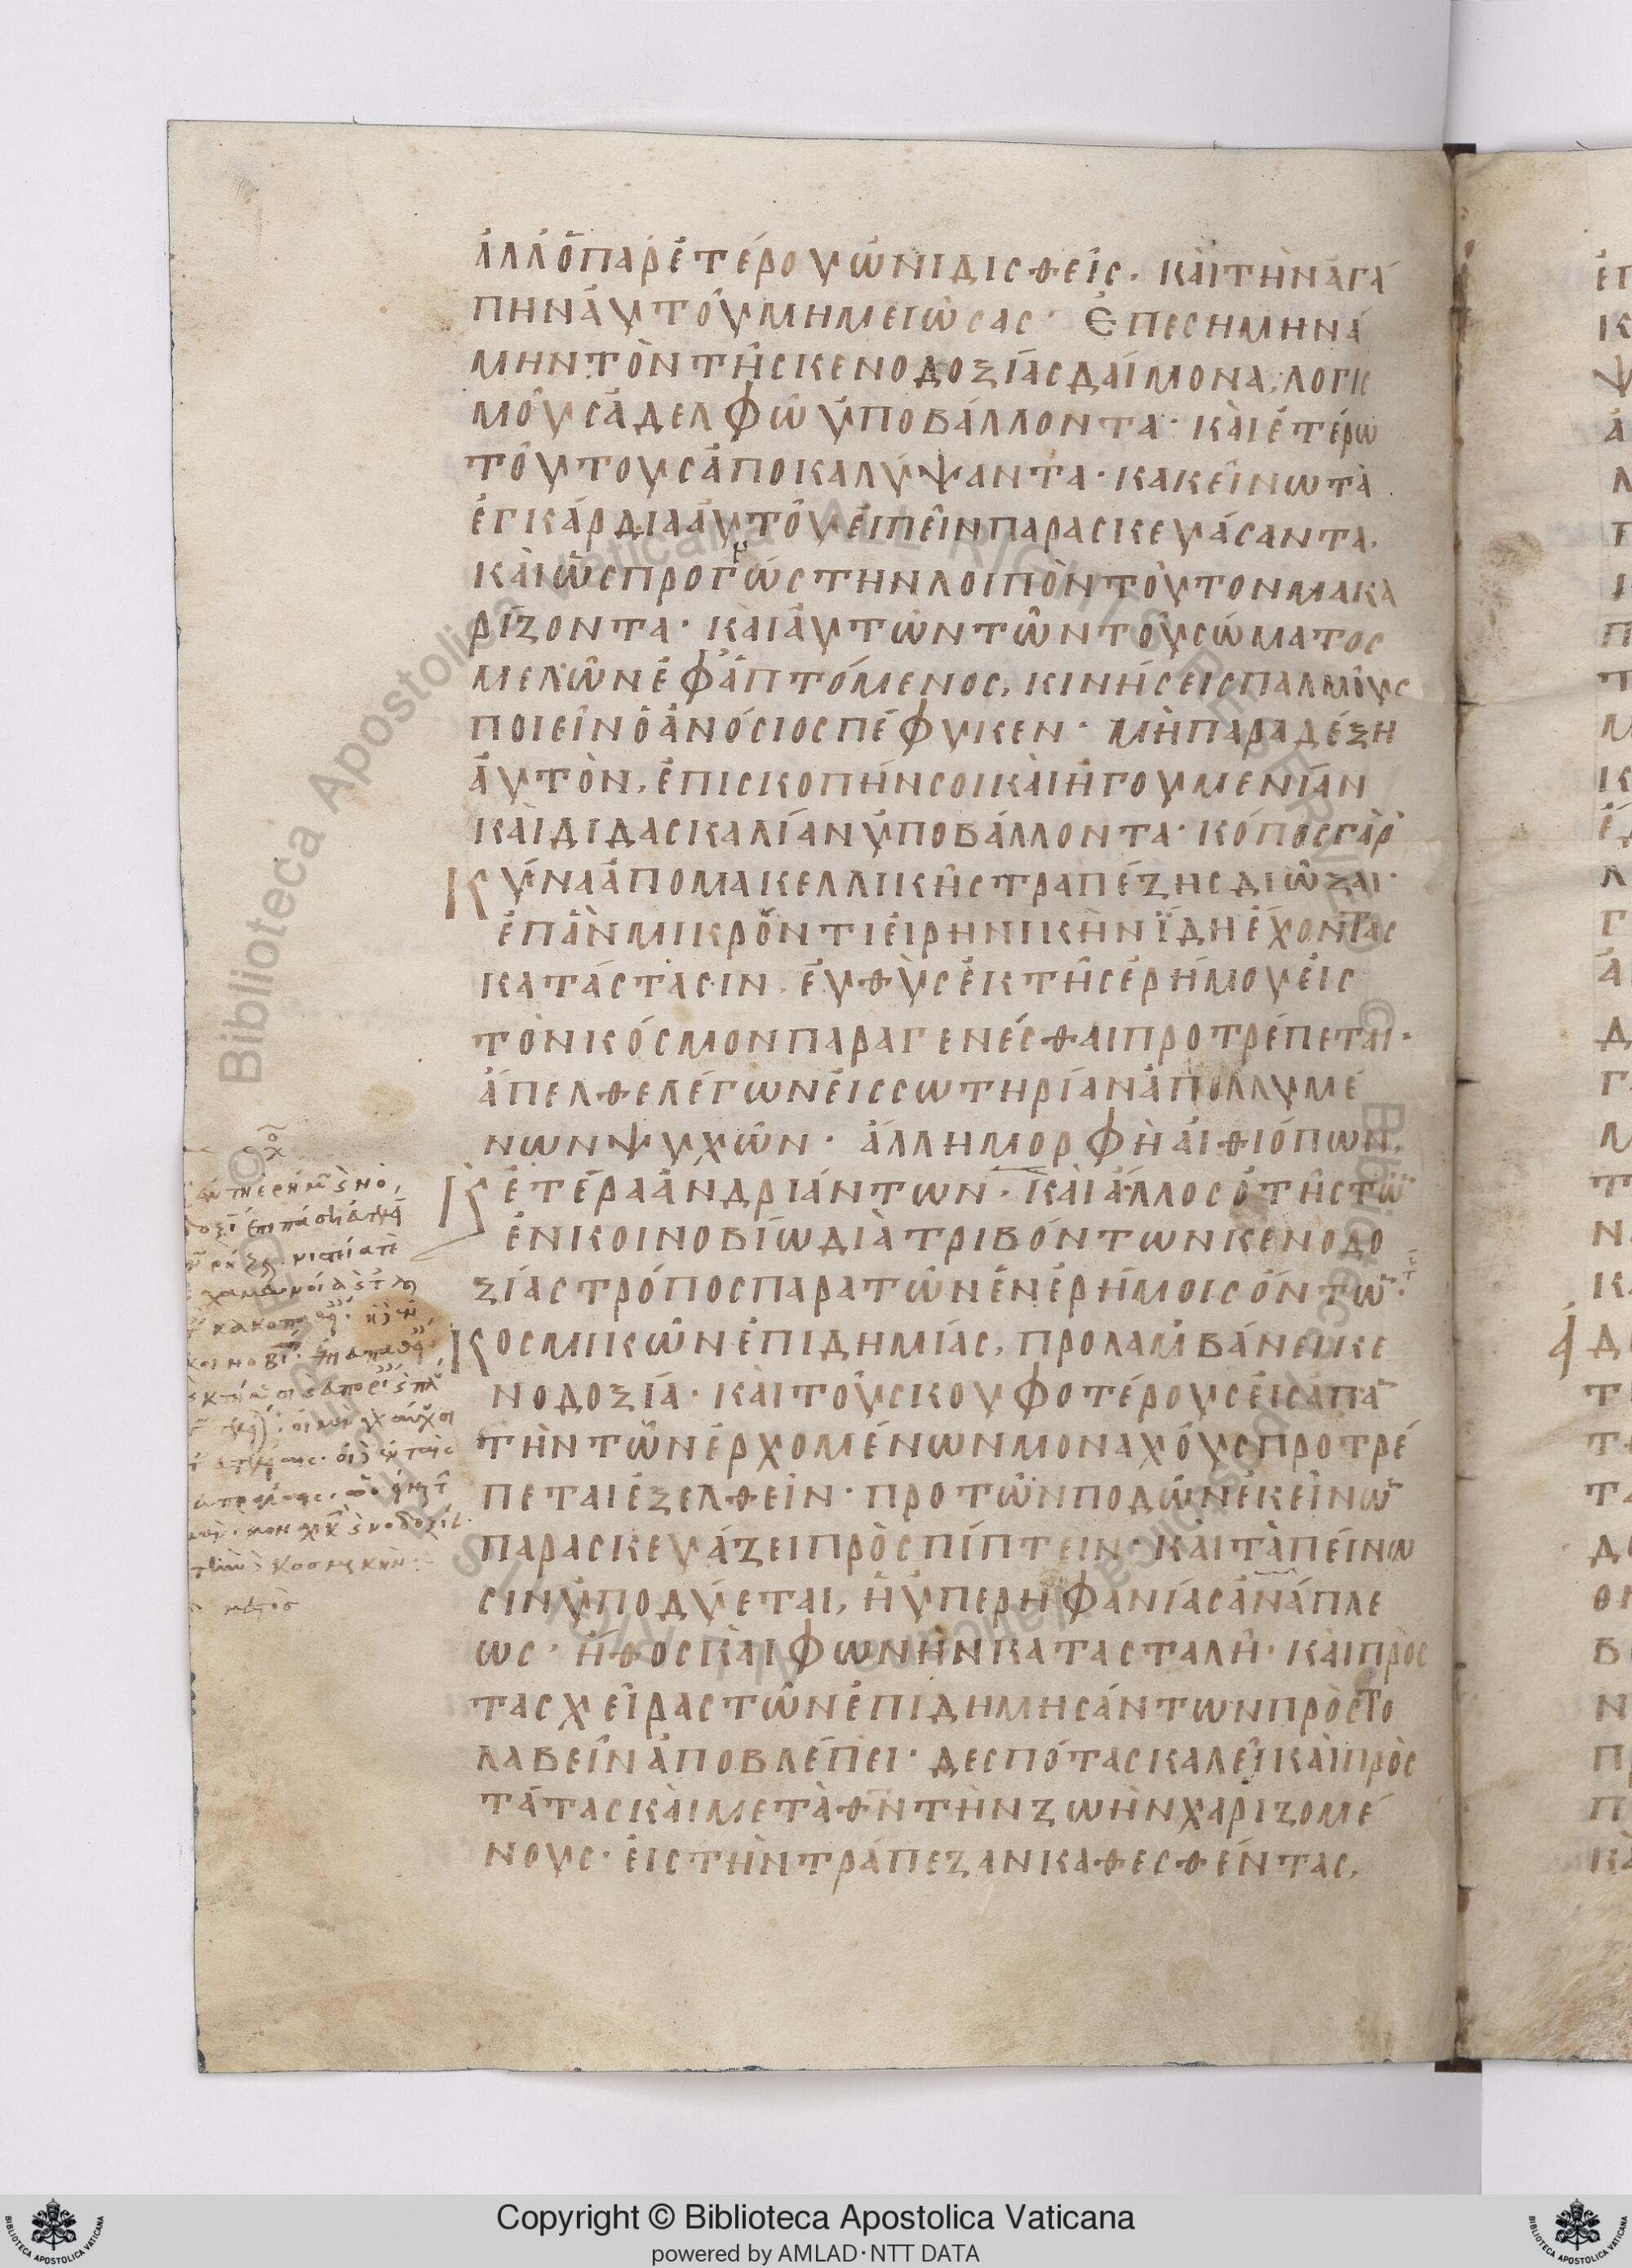 ἀλλ' ὁ παρ' ἑτέρου ὠνιδισθεὶς. καὶ τὴν ἀγά
πην ἀυτοῦ μὴ μειώσας· Ἐπεσημηνά
μην τὸν τῆς κενοδοξίας δαίμονα, λογισ
μοὺς ἀδελφῶ ὑποβάλλοντα· καὶ ἑτέρω
τούτους ἀποκαλύψαντα· κακείνω τὰ
ἐγκάρδια ἀυτοῦ ἐιπεῖν παρασκευάσαντα.
καὶ ὡς προγνώστην λοιπὸν τοῦτον μακα
ρίζοντα· καὶ ἀυτῶν τῶν τοῦ σώματος
μελῶν ἐφαπτόμενος, κινήσεις παλμοὺς
ποιεῖν ὁ ἀνόσιος πέφυκεν· μὴ παραδέξη
ἀυτὸν, ἐπισκοπήν σοι καὶ ἡγουμενίαν
καὶ διδασκαλίαν ὑποβάλλοντα· κόπος γὰρ
κύνα ἀπο μακελλικῆς τραπέζης διῶξαι·
ἐπὰν μικρόν τι ἐιρηνικὴν ἴδη ἔχοντας
κατάστασιν, ἐυθὺς ἐκ τῆς ἐρήμου ἐις
τὸν κόσμον παραγενέσθαι προτρέπεται·
ἄπελθε λέγων ἐις σωτηρίαν ἀπολλυμέ
νων ψυχῶν· ἄλλη μορφὴ ἀιθιόπων,
κ ἑτέρα ἀνδριάντων· καὶ ἄλλος ὁ τῆς τῶν
ἐν κοινοβίω διατριβόντων κενοδο
ξίας τρόπος παρα τῶν ἐν ἐρήμοις ὄντων·
κοσμικῶν ἐπιδημίας, προλαμβάνει κε
νοδοξία· καὶ τοὺς κουφοτέρους ἐις ἀπαν
τὴν τῶν ἐρχομένων μοναχοὺς προτρέ
πεται ἐξελθεῖν· προ τῶν ποδῶν ἐκείνων
παρασκευάζει πρὸς πίπτειν· καὶ ταπείνω
σιν ὑποδύεται, ἡ ὑπερηφανίας ἀνάπλε
ως· ἦθος καὶ φωνὴν κατασταλῆ· καὶ πρὸς
τας χεῖρας τῶν ἐπιδημησάντων πρὸς το
λαβεῖν ἀποβλέπει· δεσπότας καλεῖ καὶ πρὸς
τάτας καὶ μετὰ θν τὴν ζωὴν χαριζομέ
νους· ἐις τὴν τράπεζαν καθεσθέντας,
Copyright © Biblioteca Apostolica Vaticana
powered by AMLAD·NTT DATA